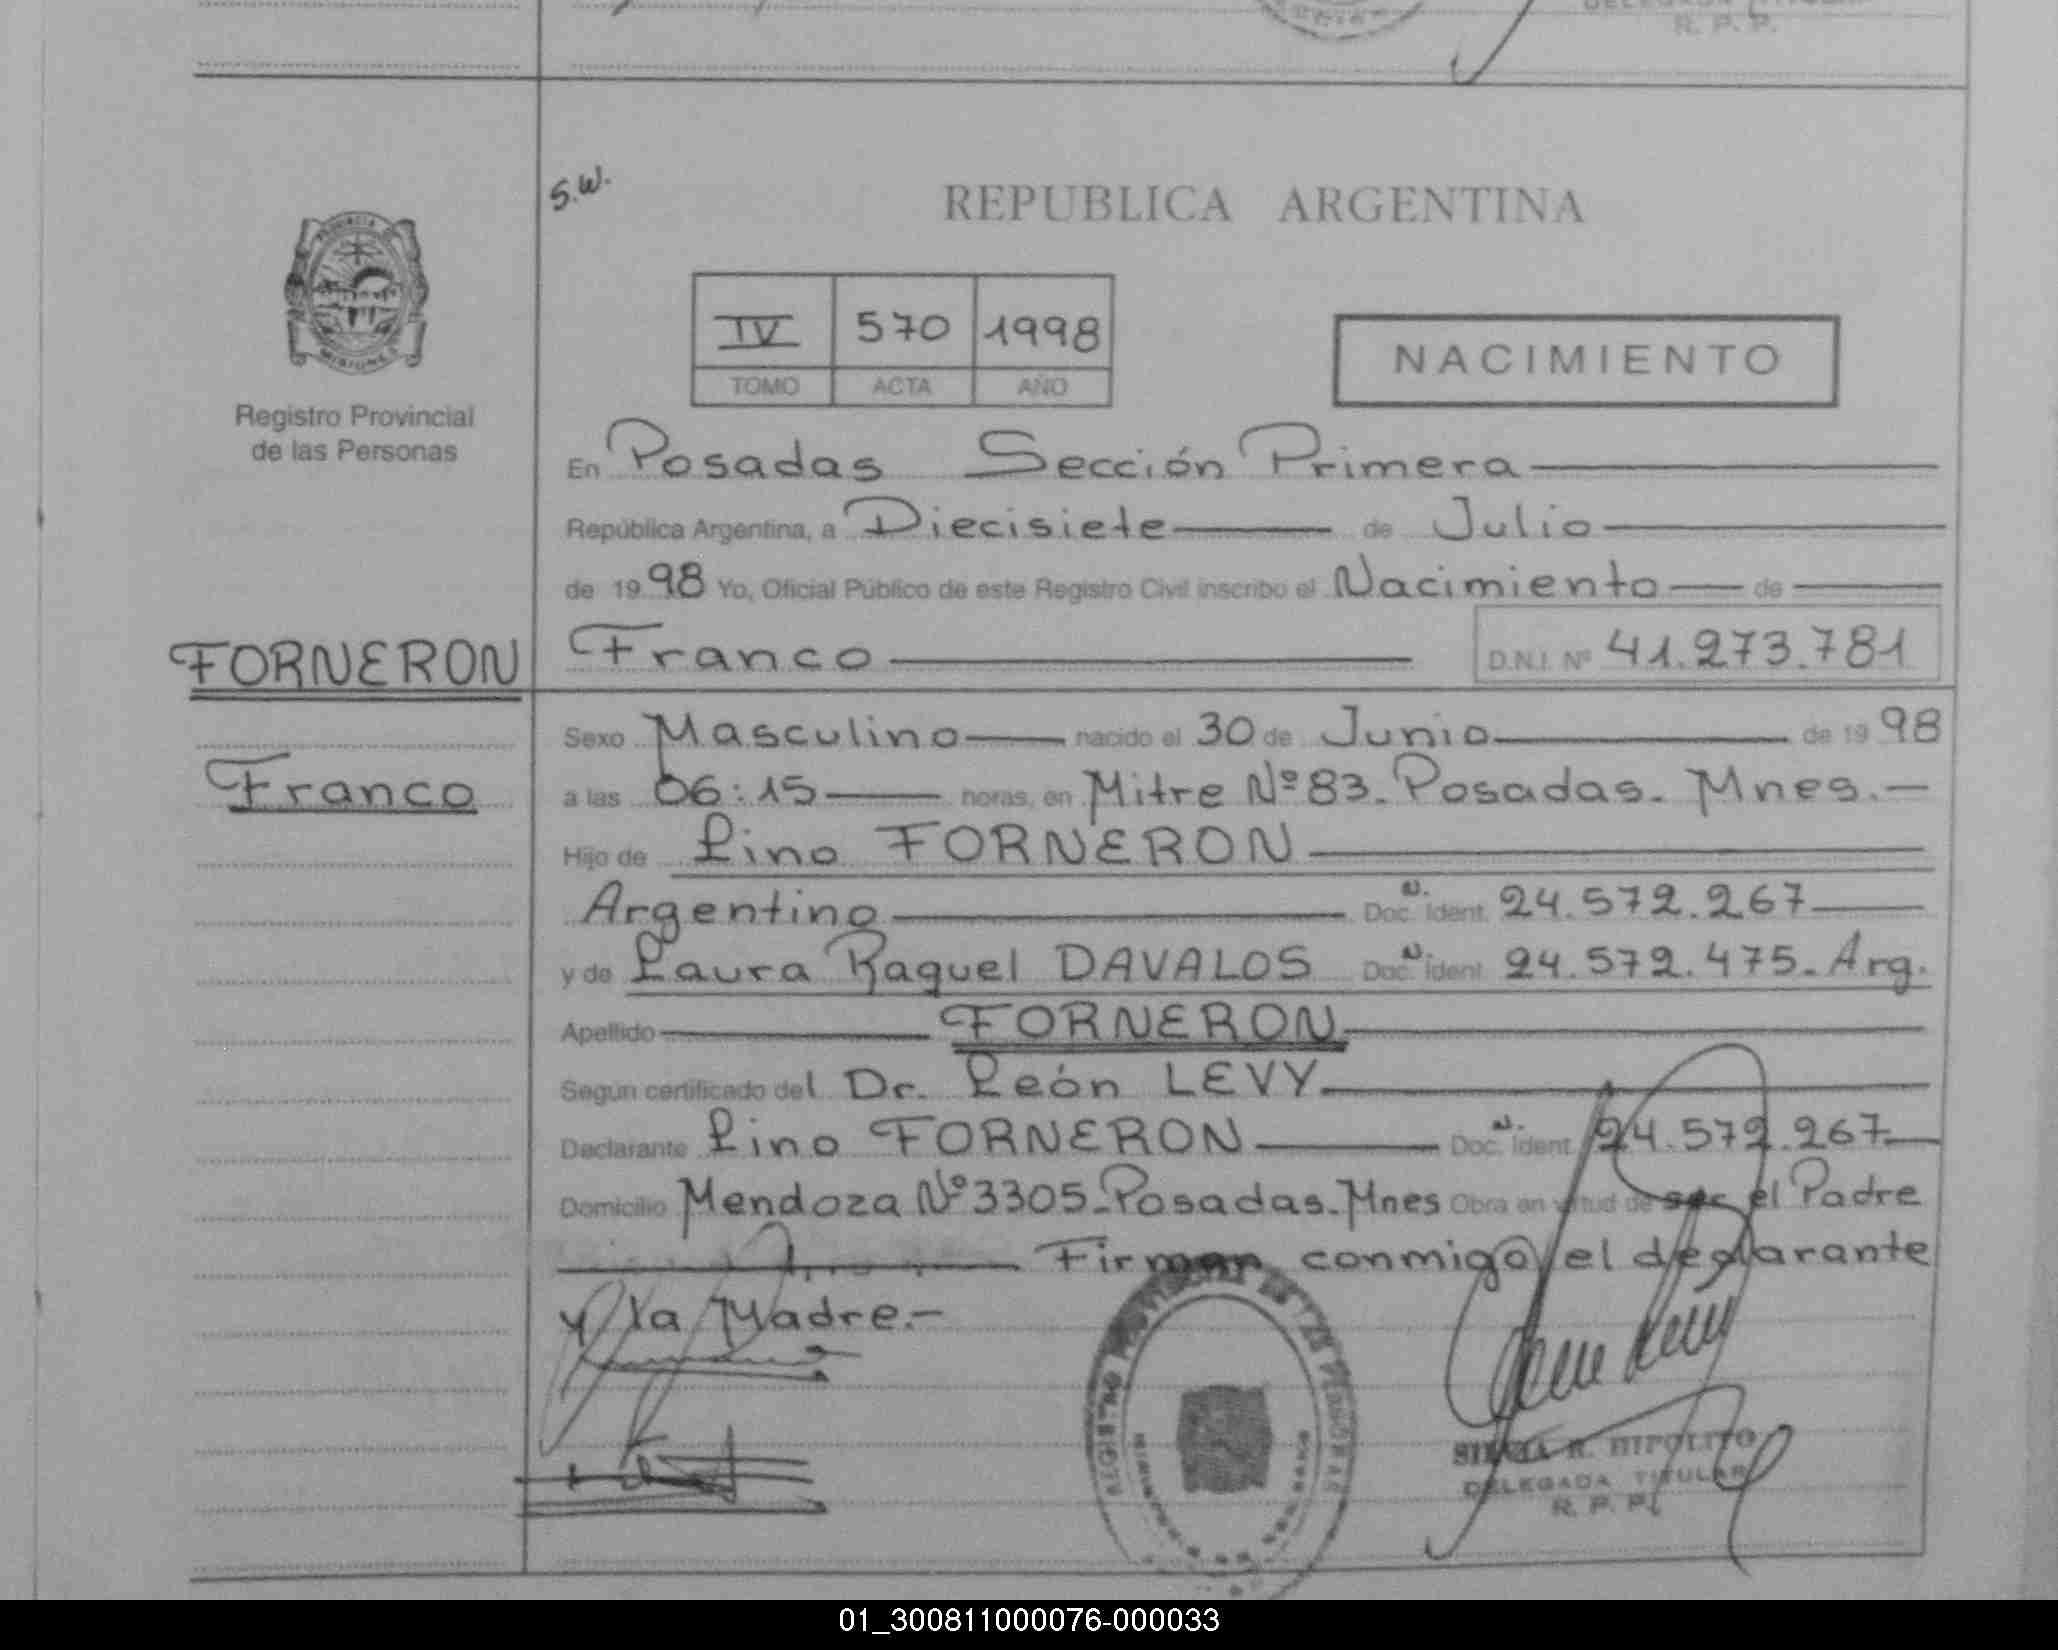 R. P. P.
S.W.
REPUBLICA ARGENTINA
PROVINCIA
MISIONES
IV 570 1998
TOMO ACTA AÑO
NACIMIENTO
Registro Provincial
de las Personas
En Posadas Sección Primera
República Argentina, a Diecisiete de Julio
de 1998 Yo, Oficial Público de este Registro Civil inscribo el Nacimiento de
FORNERON
Franco D.N.I. Nº 41.273.781
Sexo Masculino nacido el 30 de Junio de 1998
Franco
a las 06:15 horas, en Mitre Nº 83. Posadas. Mnes.-
Hijo de Lino FORNERON
Argentino Doc. N. Ident. 24.572.267
y de Laura Raquel DAVALOS Doc. N. Ident. 24.572.475. Arg.
Apellido FORNERON
Según certificado del Dr. León LEVY
Declarante Lino FORNERON Doc. N. Ident. 24.572.267
Domicilio Mendoza Nº 3305. Posadas. Mnes Obra en virtud de ser el Padre
Firman conmigo el declarante
y la Madre.-
SILVIA R. HIPOLITO
DELEGADA TITULAR
R. P. P.
01_300811000076-000033